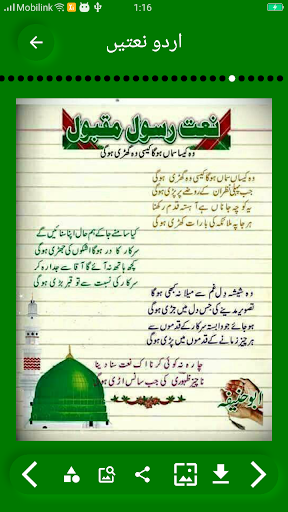 Mobilink
1:16
اردو نعتیں
نعت رسول مقبول
وہ کیسا سماں ہوگا کیسی وہ گھڑی ہوگی
وہ کیسا سماں ہوگا کیسی وہ گھڑی ہوگی
جب پہلی نظر ان کے روضے پر پڑی ہوگی
یہ کوچہ جاناں ہے آہستہ قدم رکھنا
ہر جا پہ ملائک کی بارات کھڑی ہوگی
کیا سامنے جا کے ہم حال اپنا سنائیں گے
سرکار کا در ہوگا اشکوں کی جھڑی ہوگی
کچھ ہاتھ نہ آئے گا آقا سے جدا رہ کر
سرکار کی نسبت سے توقیر بڑی ہوگی
وہ شیشہ دل غم سے میلا نہ کبھی ہوگا
تصویر مدینے کی جس دل میں جڑی ہوگی
ہو جائے جو وابستہ سرکار کے قدموں سے
ہر چیز زمانے کی قدموں میں پڑی ہوگی
چارہ نہ کوئی کرنا اک نعت سنا دینا
ناچیز ظہوری کی جب سانس اڑی ہوگی
ابو حنیفہ